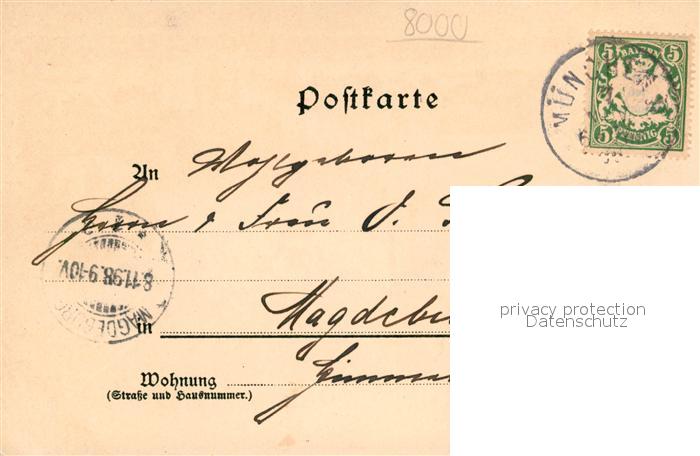 8000
Postkarte
5 BAYERN 5
5 PFENNIG 5
MÜN
An Wohlgeboren
Herrn & Frau O.
8.11.98.9-10V.
MAGDEBURG
in Magdebu
privacy protection
Datenschutz
Wohnung
(Straße und Hausnummer.)